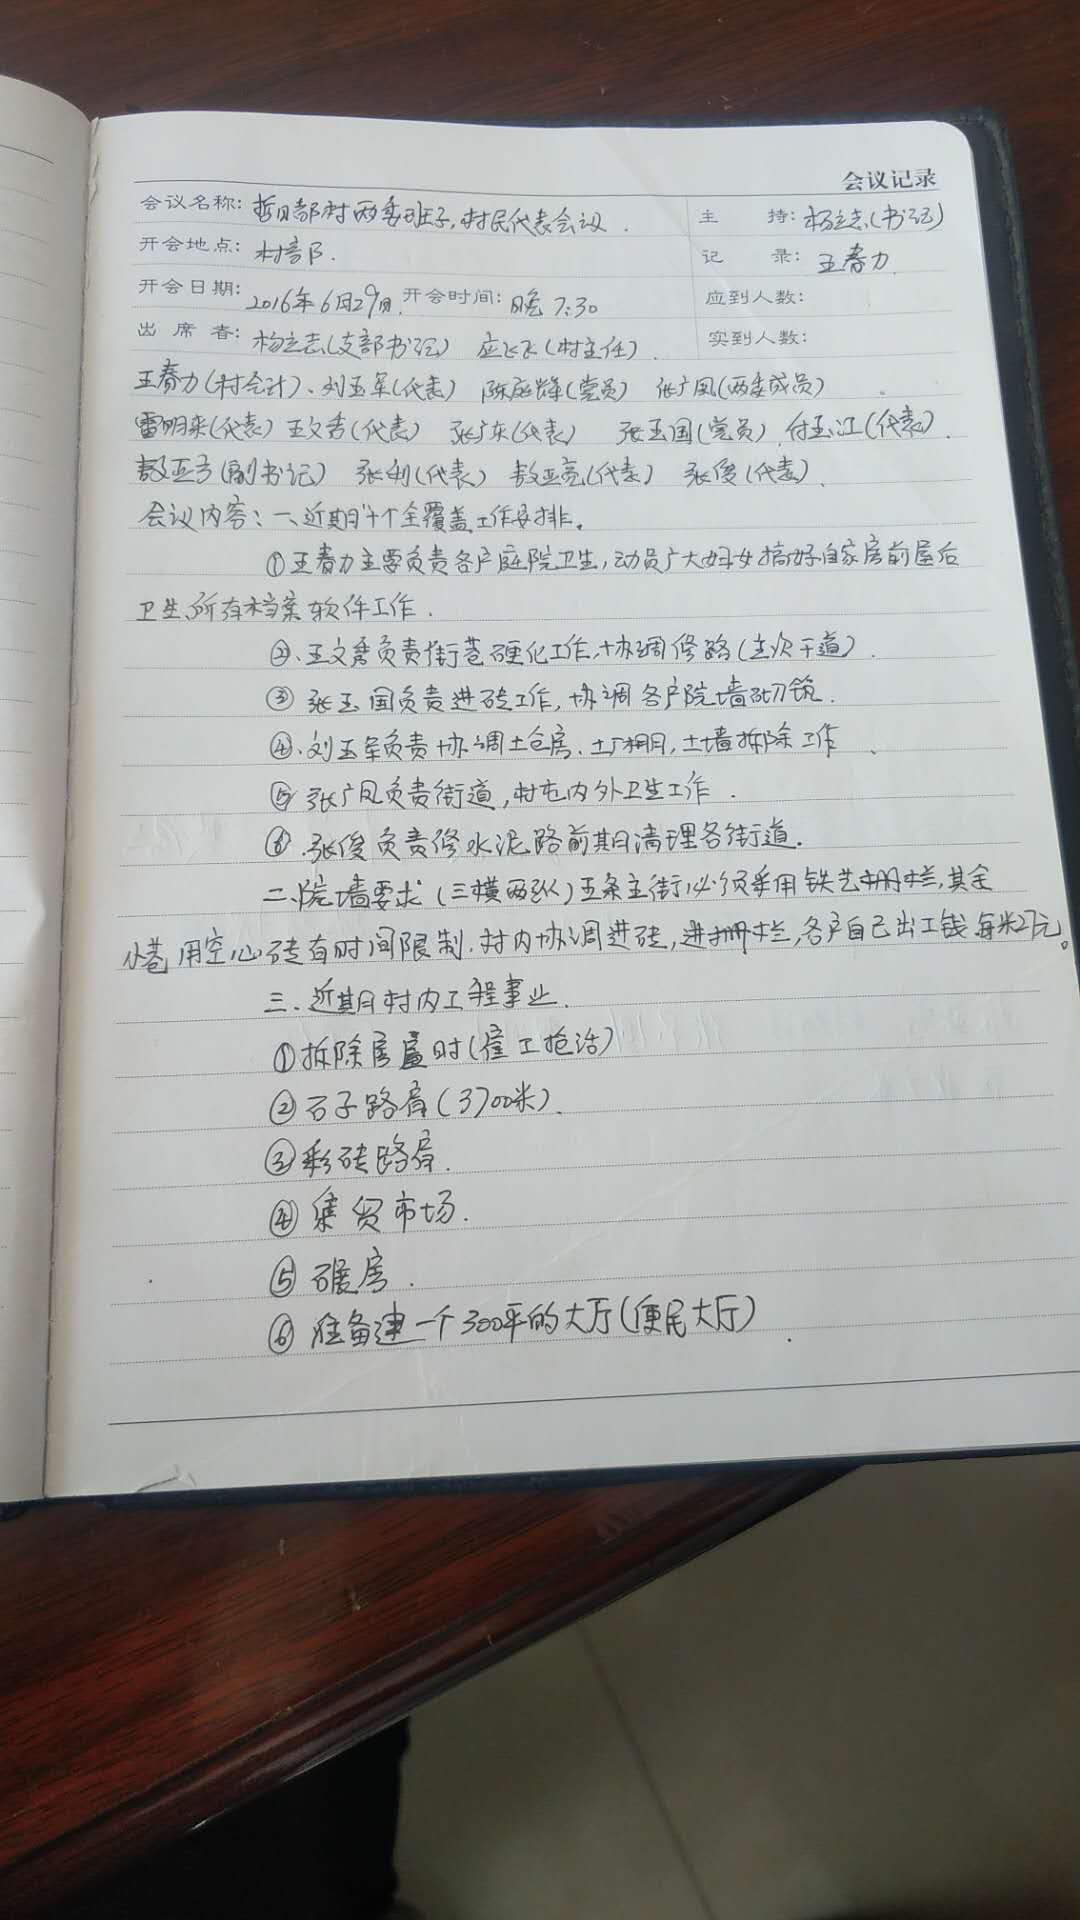 会议记录
会议名称: 哲日部村两委班子,村民代表会议. 主 持: 杨立志(书记)
开会地点: 村部. 记 录: 王春力
开会日期: 2016年6月29日. 开会时间: 晚7:30 应到人数:
出 席 者: 杨立志(支部书记) 应飞飞(村主任). 实到人数:
王春力(村会计)、刘玉军(代表) 陈庭辉(党员) 张广凤(两委成员)
雷明来(代表) 王文秀(代表) 张广东(代表) 张玉国(党员) 付玉江(代表).
敖亚方(副书记) 张利(代表) 敖亚亮(代表) 张俊(代表).
会议内容: 一、近期十个全覆盖工作安排。
①王春力主要负责各户庭院卫生,动员广大妇女搞好自家房前屋后
卫生,所有档案软件工作.
②、王文秀负责街巷硬化工作,协调修路(主次干道).
③ 张玉国负责进砖工作,协调各户院墙砌筑.
④、刘玉军负责协调土仓房、土厂棚,土墙拆除工作、
⑤ 张广凤负责街道,村屯内外卫生工作.
⑥.张俊负责修水泥路前期清理各街道.
二、院墙要求(三横两纵)五条主街必须采用铁艺栅栏,其余
小巷,用空心砖有时间限制.村内协调进砖,进栅栏,各户自己出工钱每米27元。
三、近期村内工程事业.
①拆除房屋时(雇工抢活)
②石子路肩(3700米).
③彩砖路肩.
④集贸市场.
⑤ 碾房.
⑥准备建一个300平的大厅(便民大厅).